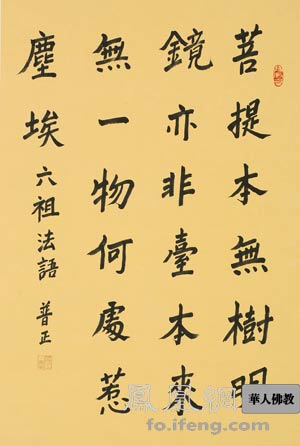 菩提本無樹明
鏡亦非臺本來
無一物何處惹
塵埃 六祖法語 普正
鳳凰網
華人佛教
fo.ifeng.com